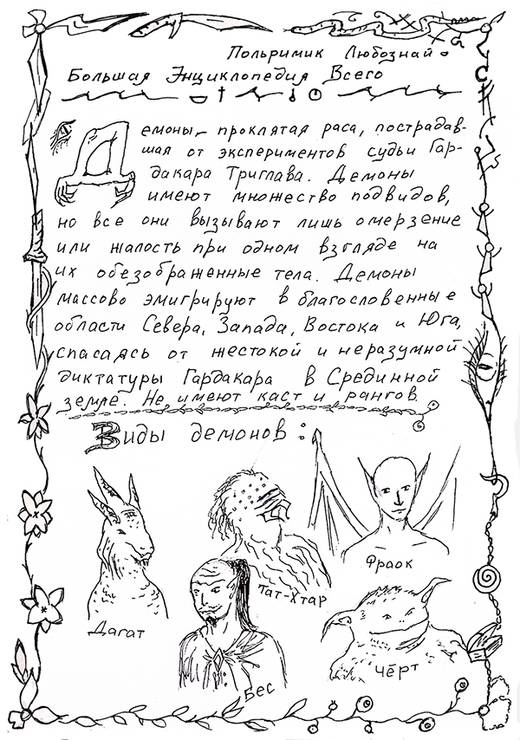 Польримик Любознай
Большая Энциклопедия Всего
Демоны – проклятая раса, пострадав-
шая от экспериментов судьи Гар-
дакара Триглава. Демоны
имеют множество подвидов,
но все они вызывают лишь омерзение
или жалость при одном взгляде на
их обезображенные тела. Демоны
массово эмигрируют в благословенные
области Севера, Запада, Востока и Юга,
спасаясь от жестокой и неразумной
диктатуры Гардакара в Срединной
земле. Не имеют каст и рангов
Виды демонов:
Дагат
Тат-Хтар
Фраок
Бес
Чёрт